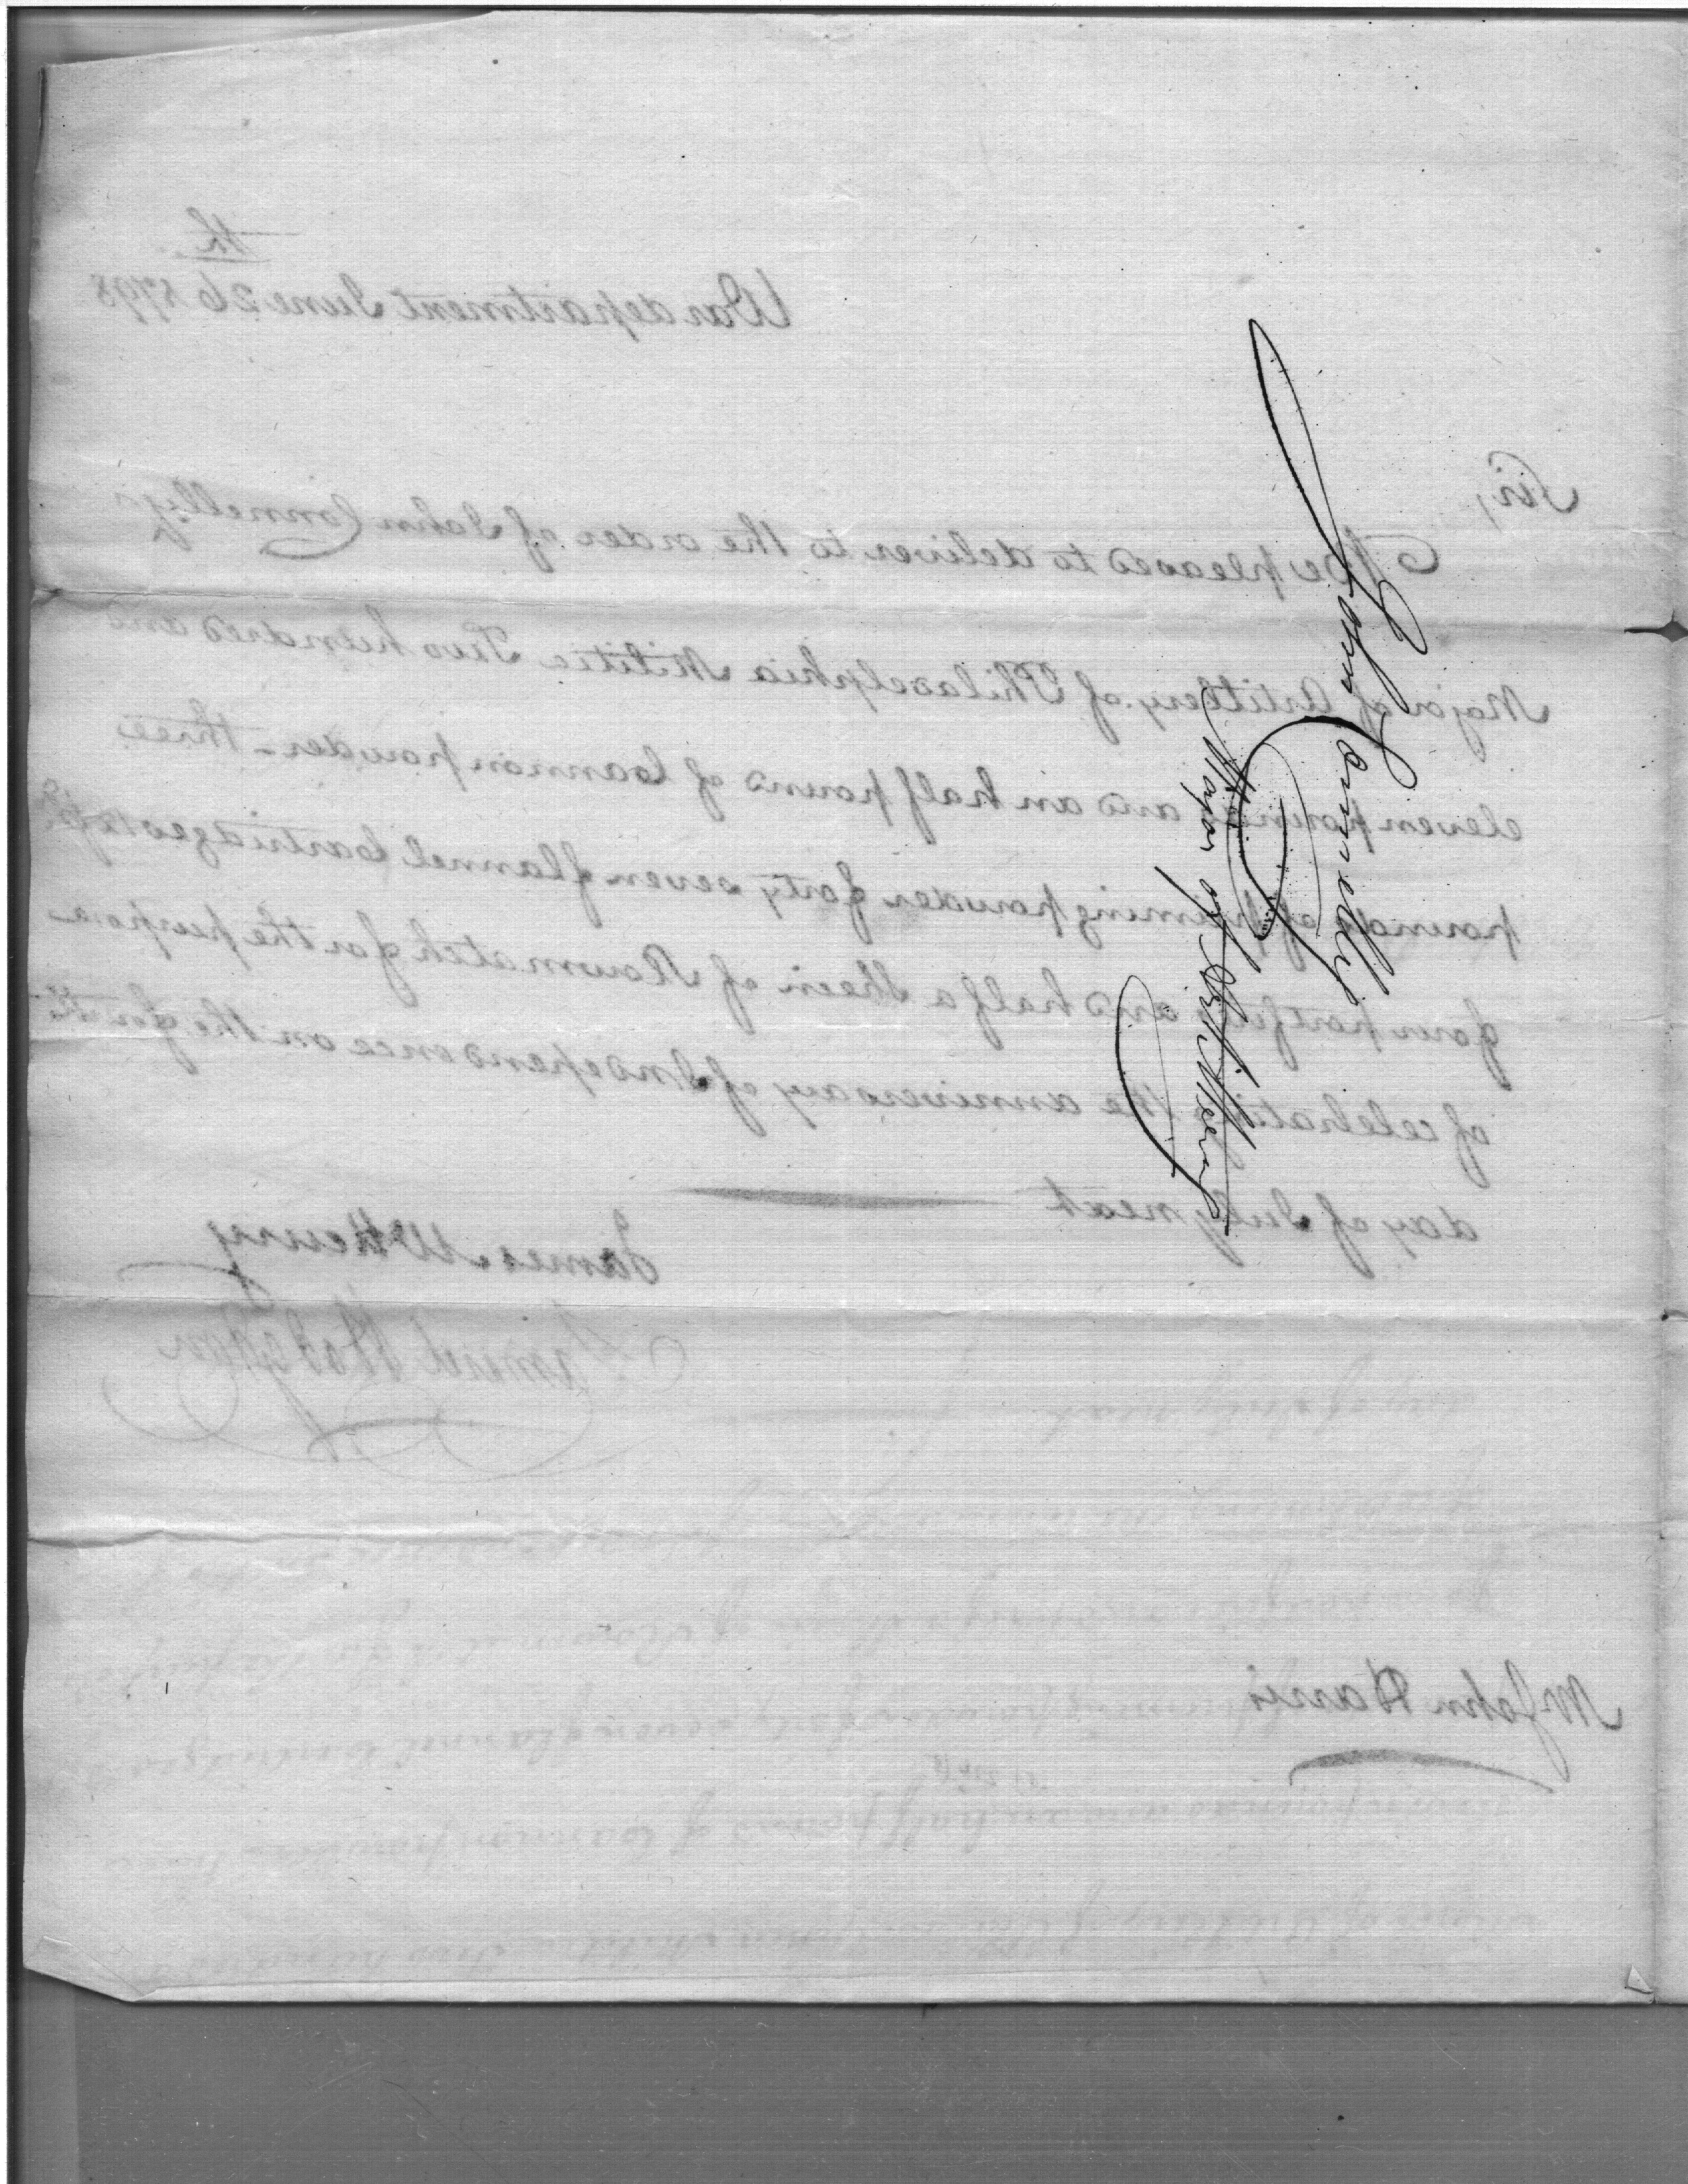 John Connelly
Major of Artillery
War department June 26th 1798
Sir,
Be pleased to deliver to the order of John Connelly
Major of Artillery of Philadelphia Militia Two hundred and
eleven pounds and an half pound of Cannon powder - three
pounds of priming powder forty seven flannel Cartridges
four portfires and half a Skein of Slowmatch for the purpose
of celebrating the anniversary of Independence on the fourth
day of July next
James McHenry
Samuel Hodgdon
Mr John Harris